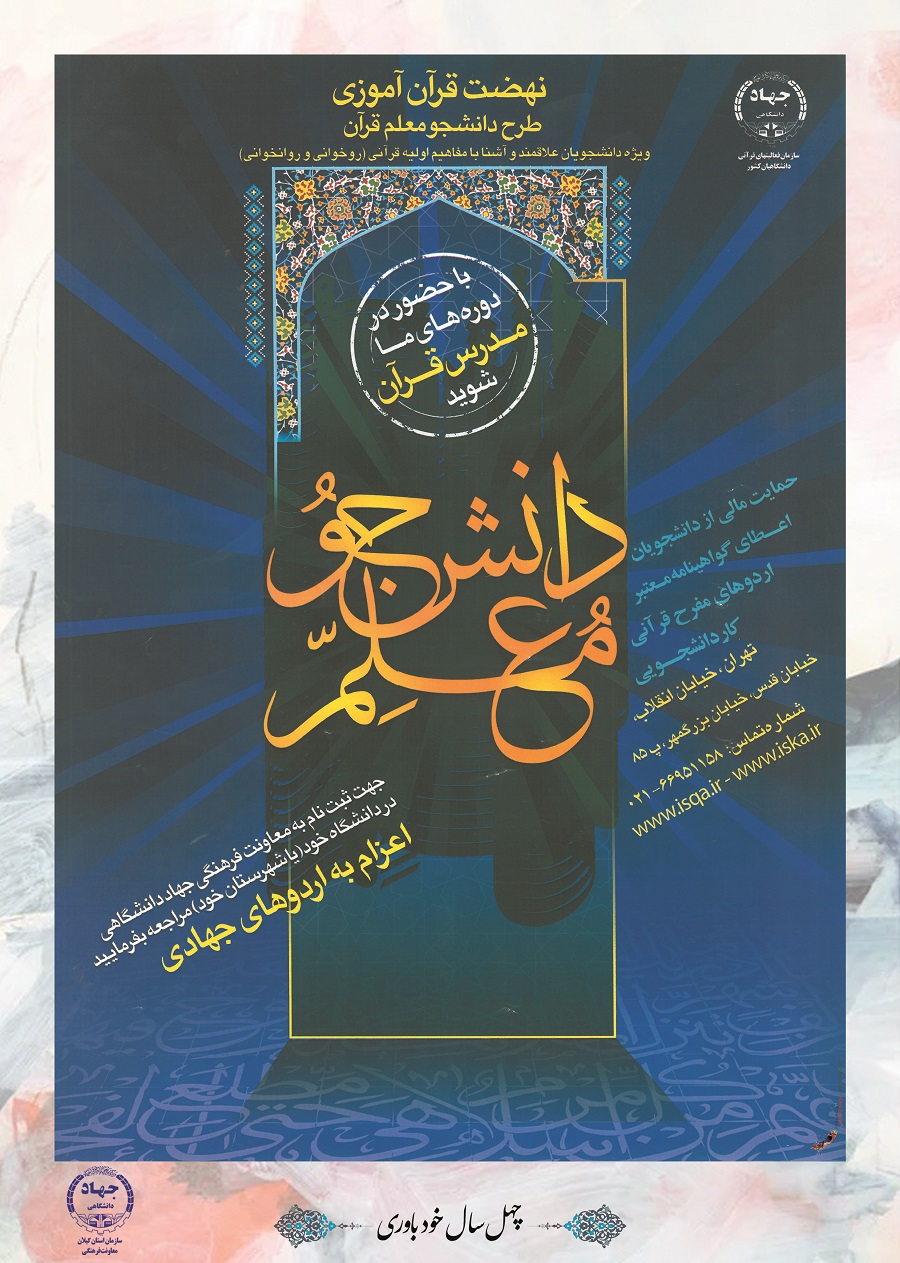 نهضت قرآن آموزی
طرح دانشجو معلم قرآن
ویژه دانشجویان علاقمند و آشنا با مفاهیم اولیه قرآنی (روخوانی و روانخوانی)
جهاد
دانشگاهی
سازمان فعالیتهای قرآنی
دانشگاهیان کشور
با حضور در
دوره های ما
مدرس قرآن
شوید
دانشجو
مُعلِّم
حمایت مالی از دانشجویان
اعطای گواهینامه معتبر
اردوهای مفرح قرآنی
کار دانشجویی
تهران، خیابان انقلاب،
خیابان قدس، خیابان بزرگمهر، پ ۸۵
شماره تماس: ۶۶۹۵۱۱۵۸-۰۲۱
www.isqa.ir - www.iska.ir
جهت ثبت نام به معاونت فرهنگی جهاد دانشگاهی
در دانشگاه خود (یا شهرستان خود) مراجعه بفرمایید
اعزام به اردوهای جهادی
جهاد
دانشگاهی
سازمان استان گیلان
معاونت فرهنگی
چهل سال خودباوری